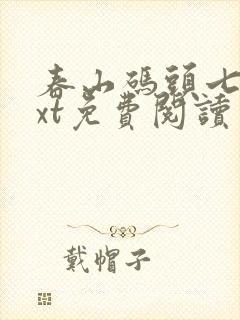 春山碼頭七
xt免費閱讀
戴帽子